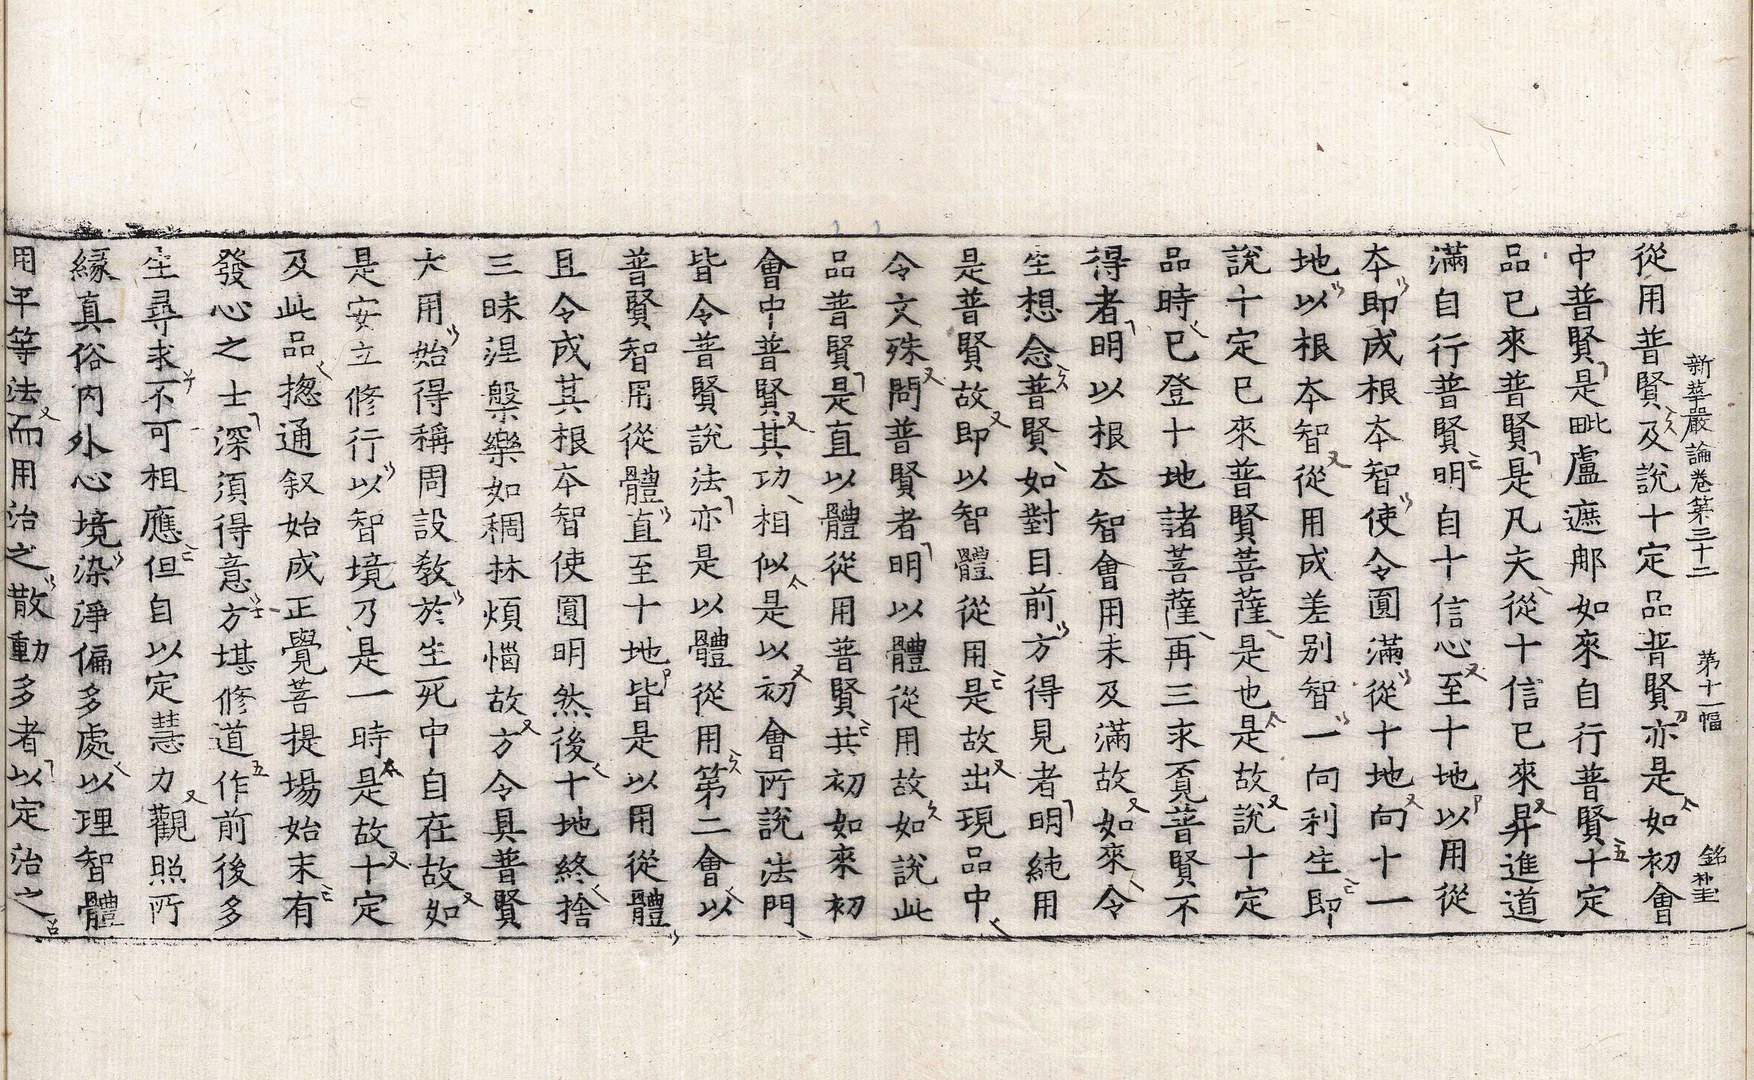 新華嚴論卷第三十二 第十一幅 銘 補 畫
從用普賢及說十定品普賢亦是如初會
中普賢是毗盧遮那如來自行普賢十定
品已來普賢是凡夫從十信已來昇進道
滿自行普賢明自十信心至十地以用從
本即成根本智使令圓滿從十地向十一
地以根本智從用成差別智一向利生即
說十定已來普賢菩薩是也是故說十定
品時已登十地諸菩薩再三求覓普賢不
得者明以根本智會用未及滿故如來令
生想念普賢如對目前方得見者明純用
是普賢故即以智體從用是故出現品中
令文殊問普賢者明以體從用故如說此
品普賢是直以體從用普賢共初如來初
會中普賢其功相似是以初會所說法門
皆令普賢說法亦是以體從用第二會以
普賢智用從體直至十地皆是以用從體
且令成其根本智使圓明然後十地終捨
三昧涅槃樂如稠林煩惱故方令具普賢
大用始得稱周設教於生死中自在故如
是安立修行以智境乃是一時是故十定
及此品揔通叙始成正覺菩提場始末有
發心之士深須得意方堪修道作前後多
生尋求不可相應但自以定慧力觀照所
緣真俗內外心境染淨偏多處以理智體
用平等法而用治之散動多者以定治之